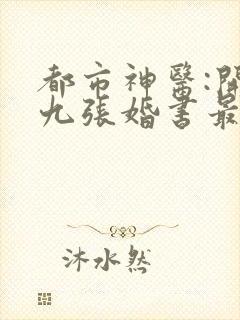 都市神醫:開
九張婚書最
沐水然